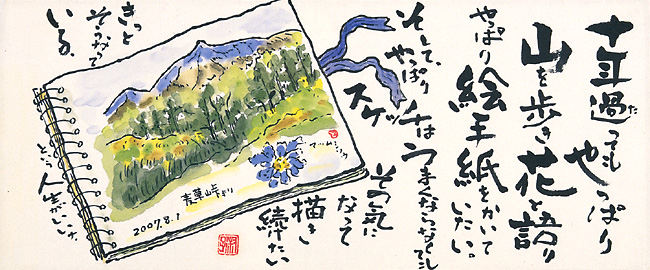 十年過っても
た
やっぱり
山を歩き花と語り
やっぱり
絵手紙をかいて
いたい。
そして、やっぱり
スケッチはうまくならなくても
その気に
なって
描き
続たい
マツムシソウ
峠より
2007.8.1
きっと
そうなって
いる。
という人生がいい。